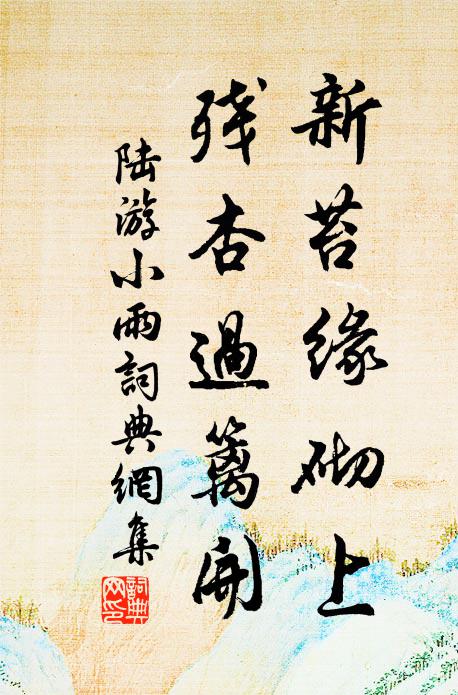 新苔緣砌上
殘杏過篱開
陆游小雨詞典網集
詞典